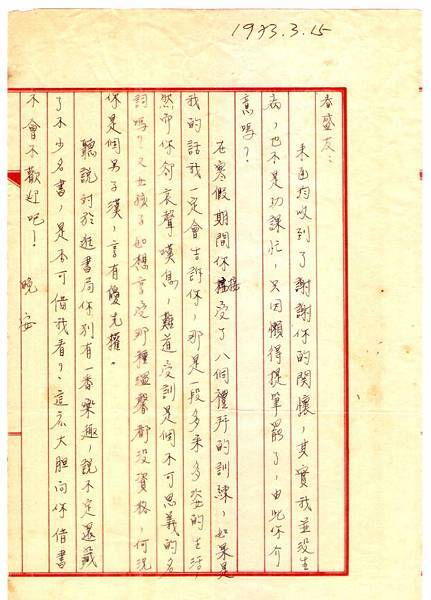 1973.3.15
春盛友:
來函均收到了謝謝你的關懷,其實我並没生
病,也不是功課忙,只因懶得提筆罷了,由此你介
意嗎?
在寒假期間你接受了八個禮拜的訓練,如果是
我的話我一定會告訴你,那是一段多采多姿的生活,
然而你卻哀聲嘆息,難道受訓是個不可思義的名
詞嗎?又女孩子如想享受那種溫馨都没資格,何況
你是個男子漢,享有優先權。
聽說对於逛書局你別有一番樂趣,說不定還藏
了不少名書,是否可借我看?這広大胆向你借書
不會不歡迎吧!
晚安